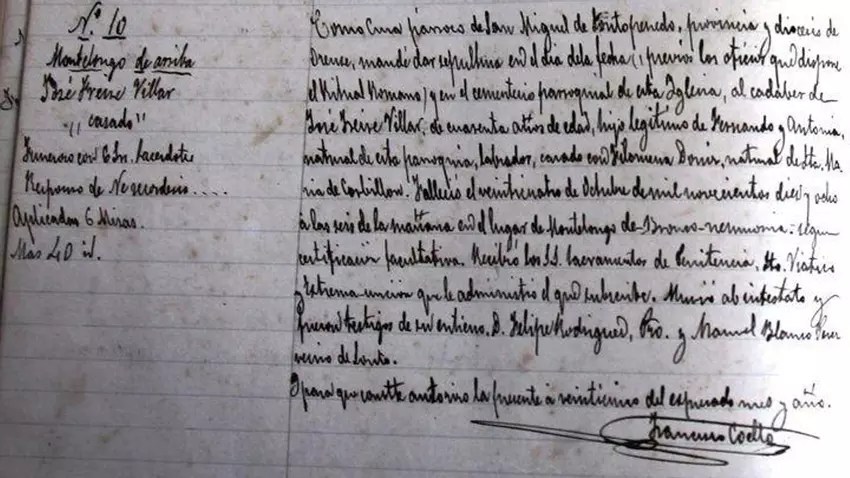 N.º 10
Montelongo de arriba
José Freire Villar
"casado"
Funeroso con 6 Srs. Sacerdotes
Responso de Ne recorderis....
Aplicadas 6 Misas.
Mas 40 id.
Como Cura párroco de San Miguel de Pontepenedo, provincia y diócesis de
Orense, mandé dar sepultura en el dia de la fecha (previos los oficios que dispone
el Ritual Romano) y en el cementerio parroquial de esta Iglesia, al cadáber de
José Freire Villar, de cuarenta años de edad, hijo legitimo de Fernando y Antonia,
natural de esta parroquia, labrador, casado con Filomena natural de Sta. Ma
ria de Corbillon. Falleció el veinticuatro de Octubre de mil novecientos diez y ocho
á las seis de la mañana en el lugar de Montelongo de Bronco-neumonia: segun
certificación facultativa. Recibió los SS. Sacramentos de Penitencia, Sto. Viático
y Extrema-uncion que le administró el que subscribe. Murió ab intestato y
fueron testigos de su entierro, D. Felipe Rodriguez, Pro. y Manuel Blanco Perez
vecino de
Y para que conste autorizo la presente á veinticinco del expresado mes y año.
Francisco Coello